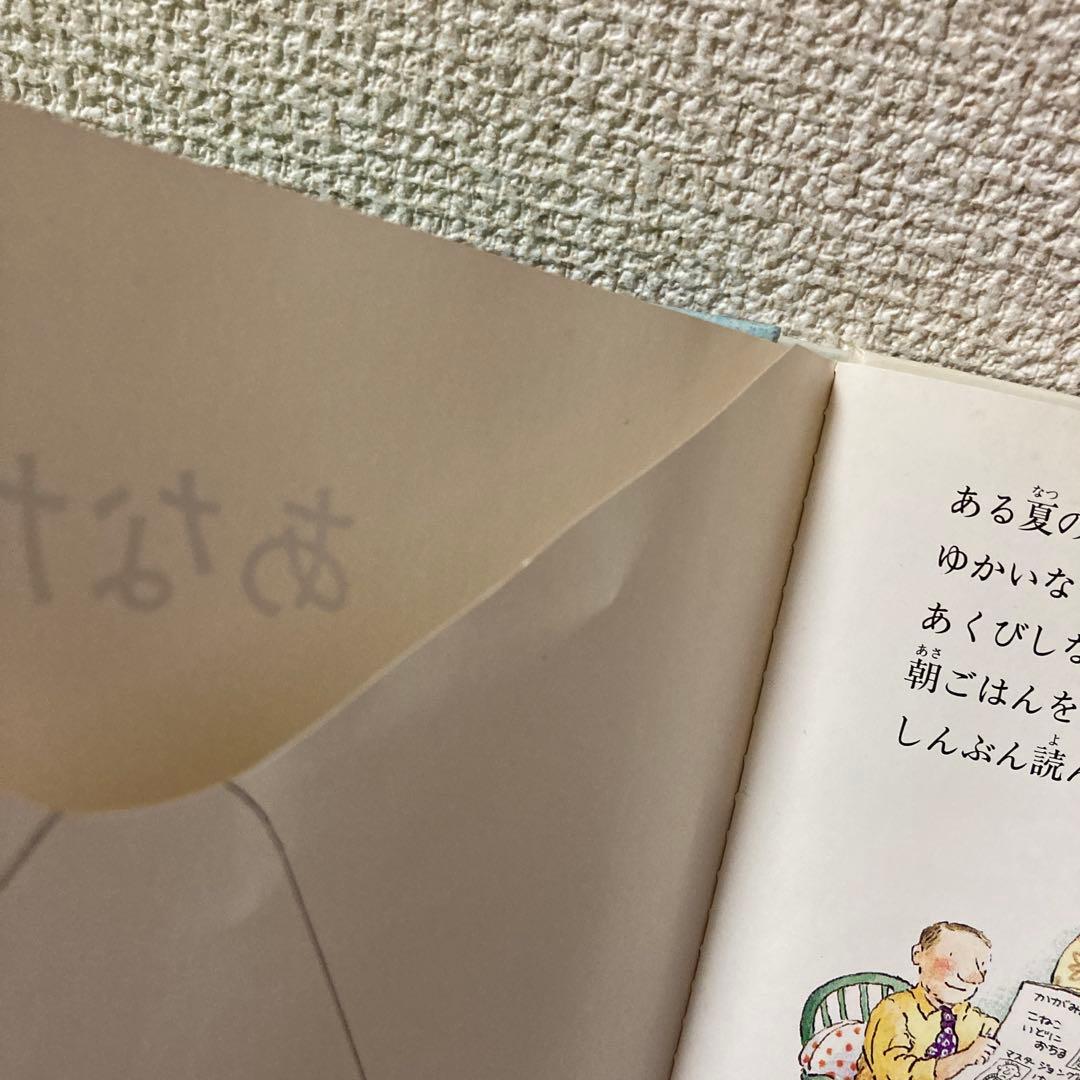 あなた
ある夏の
なつ
ゆかいな
あくびしな
朝ごはんを
あさ
しんぶん読ん
よ
かがみ
こねこ
いどに
おちる
マスター・ジョング